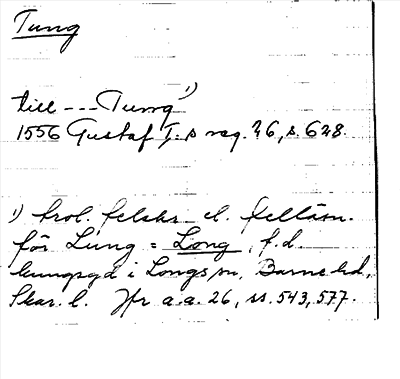 Tung
till --- Tung 1)
1556 Gustaf I:s reg. 26, s. 628.
1) trol. felskr. el. felläsn.
för Lung = Long, f.d.
kungsgd i Longs sn, Barne hd,
Skar. l. Jfr a.a. 26, ss. 543, 577.